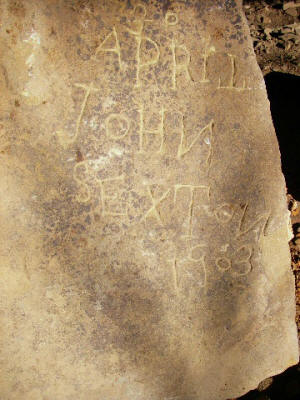 APRIL
JOHN
SEXTON
1903